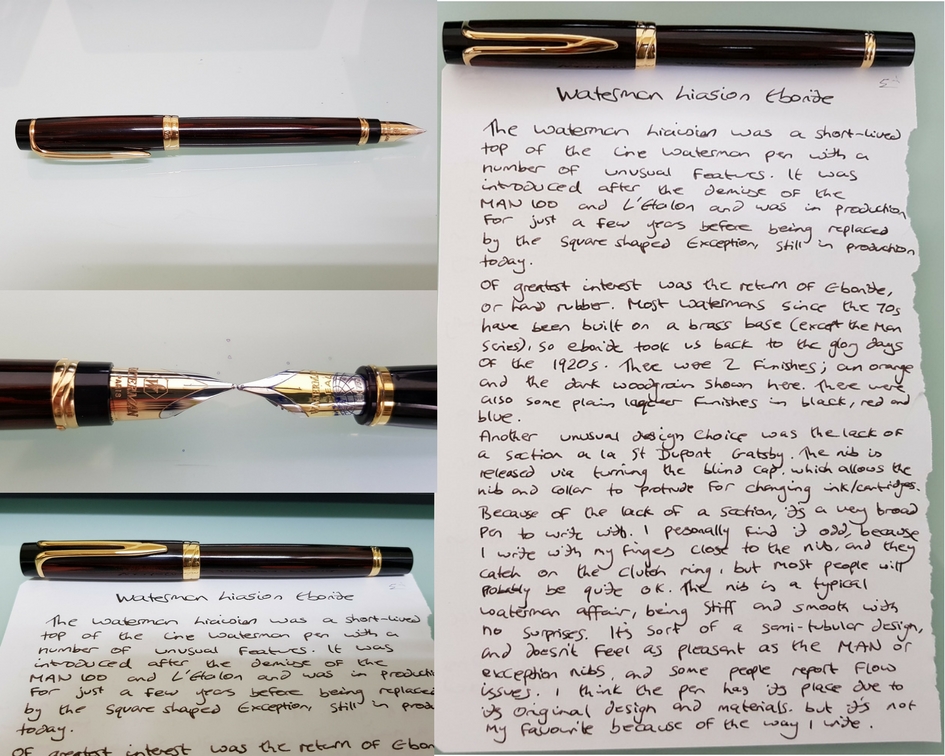 Waterman Liasion Ebonite
The Waterman Liaision was a short-lived
top of the line Waterman pen with a
number of unusual features. It was
introduced after the demise of the
MAN 100 and L'Étalon and was in production
for just a few years before being replaced
by the square shaped Exception, still in production
today.
Of greatest interest was the return of Ebonite,
or hard rubber. Most Watermans since the 70s
have been built on a brass base (except the Man
Series), so ebonite took us back to the glory days
of the 1920s. There were 2 finishes; an orange
and the dark woodgrain shown here. There were
also some plain laqueer finishes in black, red and
blue.
Another unusual design choice was the lack of
a section a la St Dupont Gatsby. The nib is
released via turning the blind cap, which allows the
nib and collar to protrude for changing ink/cartridges.
Because of the lack of a section, it's a very broad
pen to write with. I personally find it odd, because
I write with my fingers close to the nib, and they
catch on the clutch ring, but most people will
probably be quite ok. The nib is a typical
Waterman affair, being stiff and smooth with
no surprises. It's sort of a semi-tubular design,
and doesn't feel as pleasant as the MAN or
exception nibs, and some people report flow
issues. I think the pen has its place due to
its original design and materials, but it's not
my favourite because of the way I write.
Waterman Liasion Ebonite
The Waterman Liaision was a short-lived
top of the line Waterman pen with a
number of unusual features. It was
introduced after the demise of the
MAN 100 and L'Étalon and was in producti
for just a few years before being replaced
by the square shaped Exception, still in prod
today.
Of greatest interest was the return of Ebon